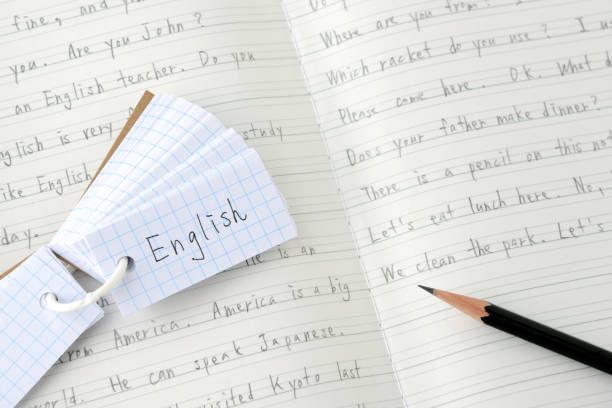 fine, and you
you. Are you John?
an English teacher. Do you
English is very study
like English
day.
He is an
from America. America is a big
world. He can speak Japanese.
visited Kyoto last
Do yo
Where are you from?
Which racket do you use? I
Please come here. O.K. What d
Does your father make dinner?
There is a pencil on this no
Let's eat lunch here. No,
We clean the park. Let's
English